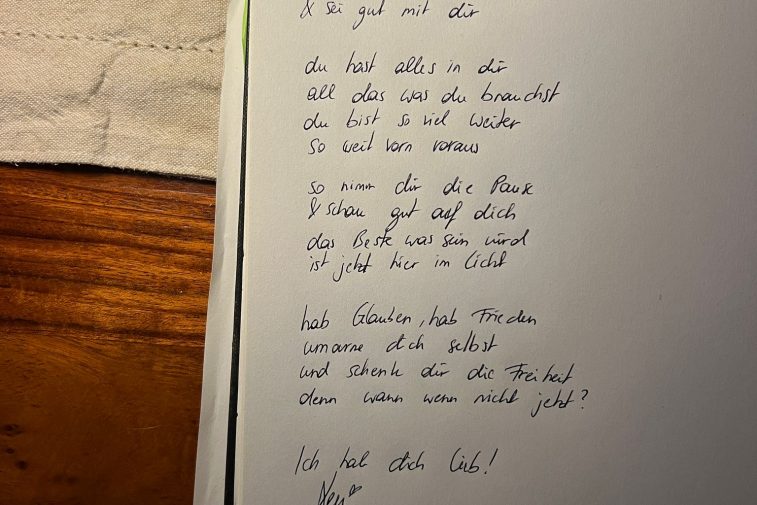 & sei gut mit dir
du hast alles in dir
all das was du brauchst
du bist so viel weiter
so weit vorn voraus
so nimm dir die Pause
& schau gut auf dich
das Beste was sein wird
ist jetzt hier im Licht
hab Glauben, hab Frieden
umarme dich selbst
und schenk dir die Freiheit
denn wann wenn nicht jetzt?
Ich hab dich lieb!